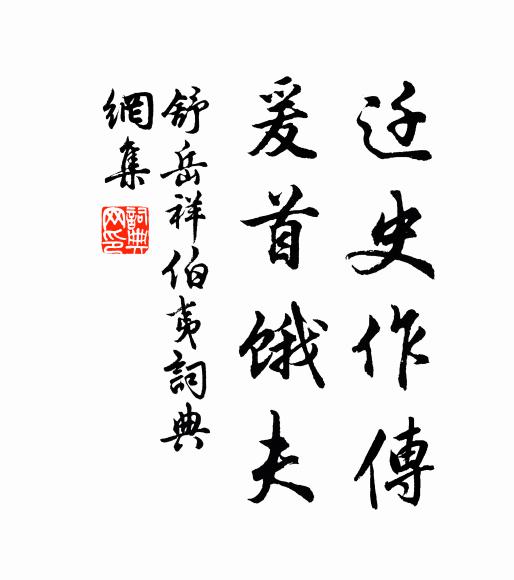 迁史作傳
爰首饿夫
舒岳祥伯夷詞典
網集
詞典
网印